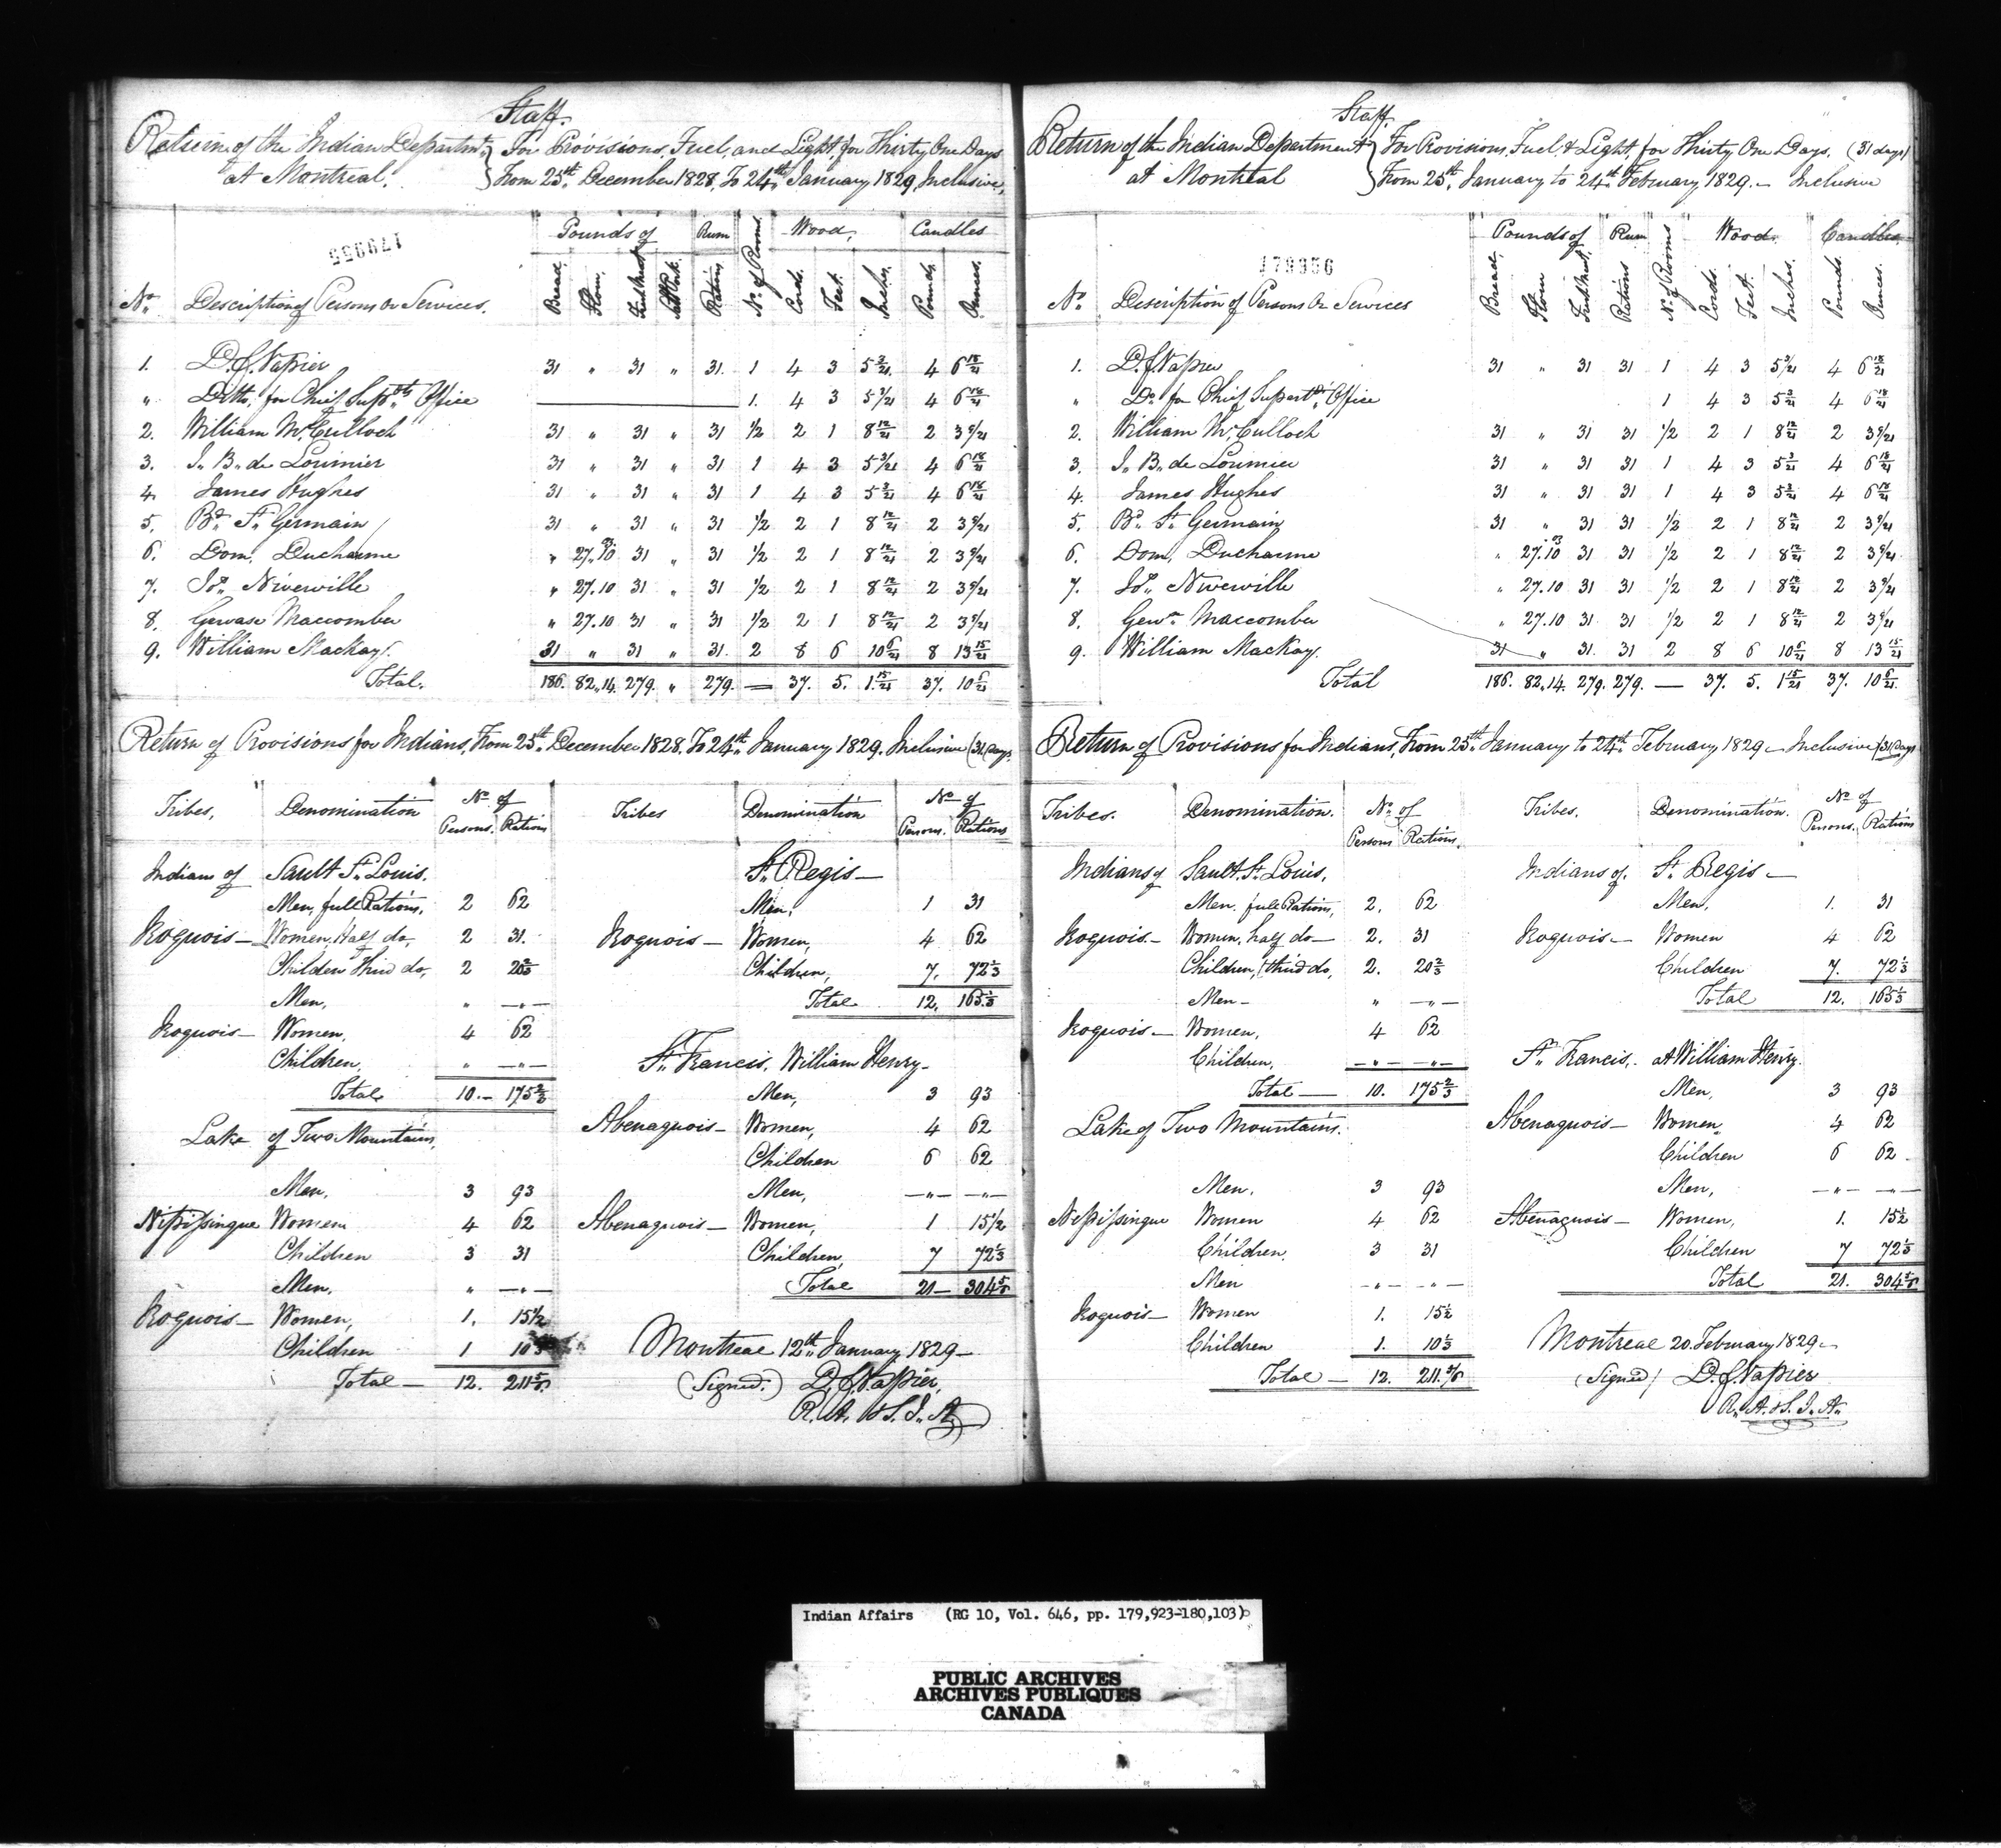 Staff.
Return of the Indian Department at Montreal. } For Provisions, Fuel, and Light, for Thirty One Days
From 25th December 1828, To 24th January 1829, Inclusive,
179955
No. Description of Persons Or Services. Pounds of Bread. Flour. Fresh Meat Salt Pork. Rum Rations No. of Rooms Wood, Cords. Feet. Inches. Candles Pounds. Ounces.
1. D. C. Napier 31 " 31 " 31. 1 4 3 5 3/21 4 6 18/21
" Ditto, for Chief Supdts Office 1. 4 3 5 3/21 4 6 18/21
2. William McCulloch 31 " 31 " 31 1/2 2 1 8 12/21 2 3 9/21
3. J. B. de Lorimier 31 " 31 " 31 1 4 3 5 3/21 4 6 18/21
4. James Hughes 31 " 31 " 31 1 4 3 5 3/21 4 6 18/21
5. Bd. St. Germain 31 " 31 " 31 1/2 2 1 8 12/21 2 3 9/21
6. Dom. Ducharme " 27.10 31 " 31 1/2 2 1 8 12/21 2 3 9/21
7. Jos. Niverville " 27.10 31 " 31 1/2 2 1 8 12/21 2 3 9/21
8. Gervase Maccomber " 27.10 31 " 31 1/2 2 1 8 12/21 2 3 9/21
9. William Mackay. 31 " 31 " 31. 2 8 6 10 6/21 8 13 15/21
Total. 186. 82.14. 279. " 279. — 37. 5. 1 15/21 37. 10 6/21
Return of Provisions for Indians, From 25th December 1828, To 24th January 1829, Inclusive (31 Days
Tribes, Denomination No. of Persons. Rations
Indians of Sault St. Louis.
Men, full Rations, 2 62
Iroquois — Women, Half do, 2 31.
Children Third do, 2 20 2/3
Men, " —"—
Iroquois — Women, 4 62
Children, " —"—
Total 10. — 175 2/3
Lake of Two Mountains,
Men, 3 93
Nipissingue Women 4 62
Children 3 31
Men, " —"—
Iroquois — Women, 1. 15 1/2
Children 1 10
Total — 12. 211 5/6
Tribes Denomination No. of Persons. Rations
St. Regis —
Men, 1 31
Iroquois — Women, 4 62
Children, 7. 72 1/3
Total 12. 165 1/3
St. Francis, William Henry —
Men, 3 93
Abenaquois — Women, 4 62
Children 6 62
Men, —"— —"—
Abenaquois — Women, 1 15 1/2
Children, 7 72 1/3
Total 21 — 304 5/6
Montreal 12th January 1829 —
(Signed.) D. C. Napier,
R. A. & S. I. A.
Staff.
Return of the Indian Department at Montreal } For Provisions, Fuel, & Light, for Thirty One Days. (31 days)
From 25th January to 24th February 1829. — Inclusive
179956
No. Description of Persons Or Services Pounds of Bread, Flour Fresh Meat. Rum Rations No. of Rooms Wood. Cords. Feet. Inches. Candles. Pounds. Ounces.
1. D. C. Napier 31 " 31 31 1 4 3 5 3/21 4 6 18/21
" Do. for Chief Supertdts Office 1 4 3 5 3/21 4 6 18/21
2. William McCulloch 31 " 31 31 1/2 2 1 8 12/21 2 3 9/21
3. J. B. de Lorimier 31 " 31 31 1 4 3 5 3/21 4 6 18/21
4. James Hughes 31 " 31 31 1 4 3 5 3/21 4 6 18/21
5. Bd. St. Germain 31 " 31 31 1/2 2 1 8 12/21 2 3 9/21
6. Dom. Ducharme " 27.10 31 31 1/2 2 1 8 12/21 2 3 9/21
7. Jos. Niverville " 27.10 31 31 1/2 2 1 8 12/21 2 3 9/21
8. Gerv. Maccomber " 27.10 31 31 1/2 2 1 8 12/21 2 3 9/21
9. William Mackay. 31 " 31. 31 2 8 6 10 6/21 8 13 15/21
Total 186. 82.14. 279. 279. — 37. 5. 1 15/21 37. 10 6/21
Return of Provisions for Indians, From 25th January to 24th February 1829 — Inclusive (31 Days
Tribes. Denomination. No. of Persons Rations.
Indians of Sault St. Louis,
Men, full Rations, 2. 62
Iroquois — Women, half do — 2. 31
Children, third do, 2. 20 2/3
Men — " —"—
Iroquois — Women, 4 62
Children, —"— —"—
Total — 10. 175 2/3
Lake of Two Mountains.
Men. 3 93
Nepissingue Women 4 62
Children. 3 31
Men —"— —"—
Iroquois — Women 1. 15 1/2
Children 1. 10 1/3
Total — 12. 211 5/6
Tribes. Denomination. No. of Persons. Rations
Indians of. St. Regis —
Men, 1. 31
Iroquois — Women 4 62
Children 7. 72 1/3
Total 12. 165 1/3
St. Francis, — at William Henry.
Men, 3 93
Abenaquois — Women, 4 62
Children 6 62
Men, —"— —"—
Abenaquois — Women, 1. 15 1/2
Children 7 72 1/3
Total 21. 304 5/6
Montreal 20 February 1829 —
(Signed) D. C. Napier
R. A. & S. I. A.
Indian Affairs (RG 10, Vol. 646, pp. 179,923-180,103)
PUBLIC ARCHIVES
ARCHIVES PUBLIQUES
CANADA